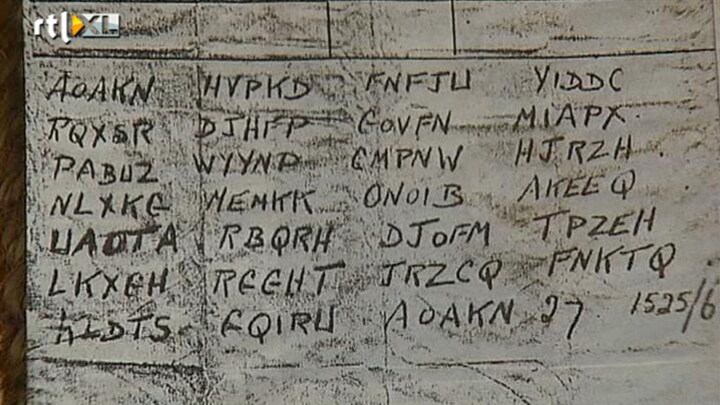 rtl XL
AOAKN HVPKD FNFJW YIDDC
RQXSR DJHFP GOVFN MIAPX
PABUZ WYYNP CMPNW HJRZH
NLXKG MEMKK ONOIB AKEEQ
UAOTA RBQRH DJOFM TPZEH
LKXGH RGGHT JRZCQ FNKTQ
KLDTS GQIRU AOAKN 27 1525/6